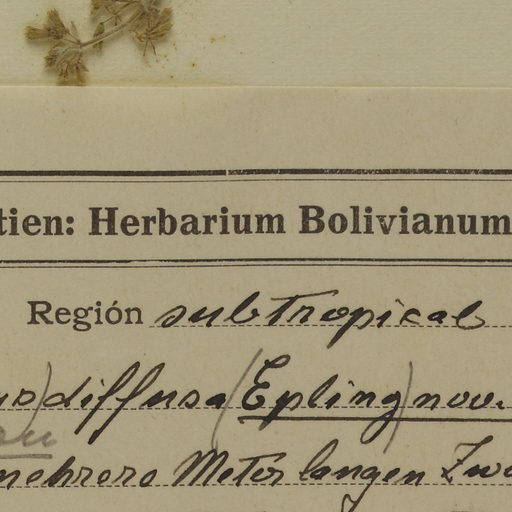 tien: Herbarium Bolivianum
Región subtropical
us) diffusa (Epling) nov.
mehrere Meter langen Zwe